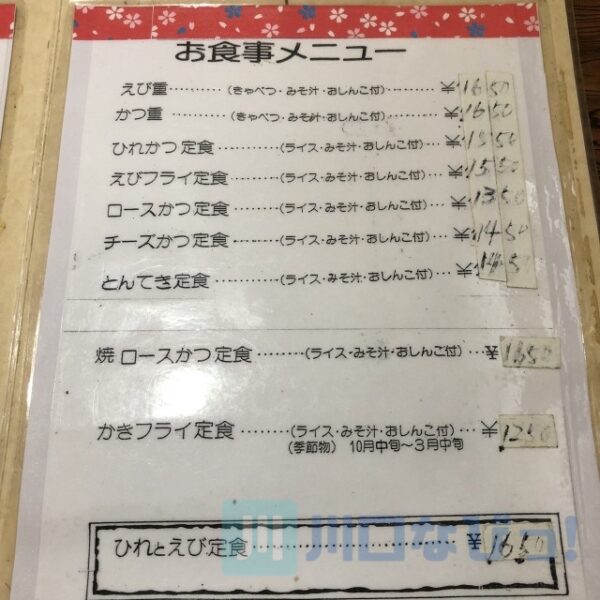 お食事メニュー
えび重………(きゃべつ・みそ汁・おしんこ付)………¥1650
かつ重………(きゃべつ・みそ汁・おしんこ付)………¥1650
ひれかつ定食………(ライス・みそ汁・おしんこ付)…¥1550
えびフライ定食………(ライス・みそ汁・おしんこ付)…¥1550
ロースかつ定食………(ライス・みそ汁・おしんこ付)…¥1350
チーズかつ定食………(ライス・みそ汁・おしんこ付)…¥1450
とんてき定食………(ライス・みそ汁・おしんこ付)…¥145
焼ロースかつ定食………(ライス・みそ汁・おしんこ付)…¥
かきフライ定食………(ライス・みそ汁・おしんこ付)…¥1250
(季節物) 10月中旬～3月中旬
ひれとえび定食………¥1650
川口なびっ!